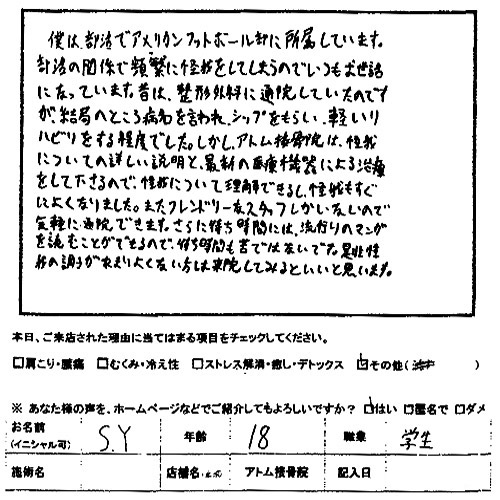 僕は、部活でアメリカンフットボール部に所属しています。
部活の関係で頻繁に怪我をしてしまうのでいつもお世話
になっています。昔は、整形外科に通院していたのです
が、結局のところ病名を言われ、シップをもらい、軽いリ
ハビリをする程度でした。しかし、アトム接骨院は、怪我
についての詳しい説明と、最新の医療機器による治療
をして下さるので、怪我について理解できるし、怪我もすぐ
によくなりました。またフレンドリーなスタッフしかいないので
気軽に通院できます。さらに待ち時間には、流行りのマンガ
を読むことができるので、待ち時間も苦ではないです。是非怪
我の調子があまりよくない方は来院してみるといいと思います。
本日、ご来店された理由に当てはまる項目をチェックしてください。
□肩こり・腰痛 □むくみ・冷え性 □ストレス解消・癒し・デトックス ☑その他( )
※ あなた様の声を、ホームページなどでご紹介してもよろしいですか？ ☑はい □匿名で □ダメ
お名前 (イニシャル可) S.Y 年齢 18 職業 学生
施術名 店舗名 アトム接骨院 記入日